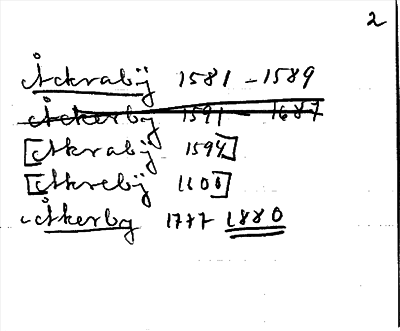 2
Åckrabÿ 1581-1589
Åckerby 1591 - 1687
[Åkrabÿ 1594]
[Åkrebÿ 1601]
Åkerby 1777 1880